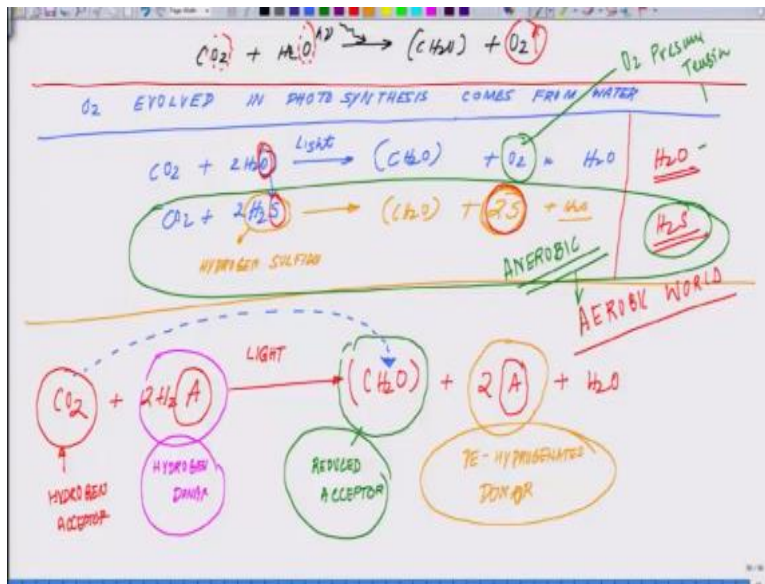 CO2 + H2O → (CH2O) + O2
O2 Pressure
Tension
O2 EVOLVED IN PHOTO SYNTHESIS COMES FROM WATER
CO2 + 2H2O Light → (CH2O) + O2 + H2O H2O
CO2 + 2H2S → (CH2O) + 2S + H2O H2S
HYDROGEN SULFIDE
ANEROBIC
AEROBIC WORLD
LIGHT
CO2 + 2H2A → (CH2O) + 2A + H2O
HYDROGEN ACCEPTOR
HYDROGEN DONAR
REDUCED ACCEPTOR
DE-HYDROGENATED DONOR